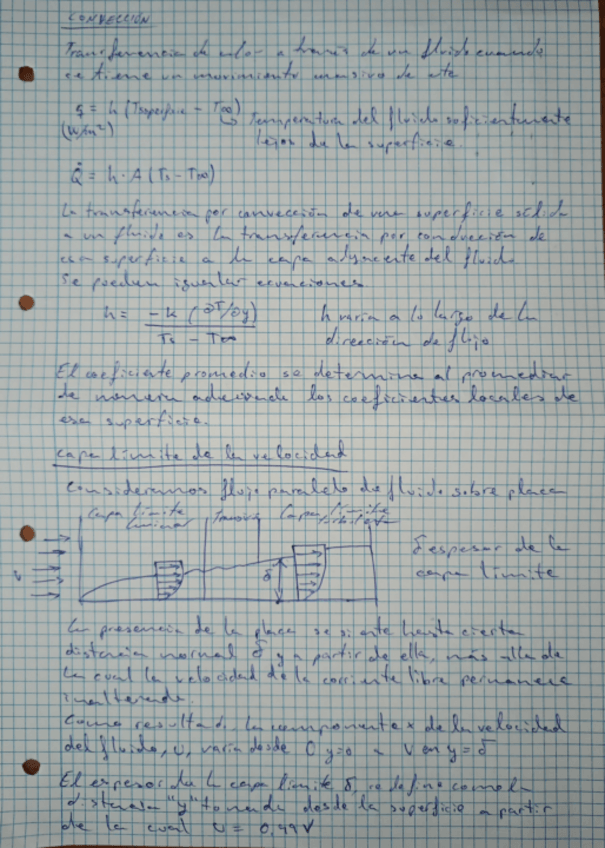 CONVECCIÓN
Transferencia de calor a través de un fluido cuando
se tiene un movimiento masivo de este
q̇ = h (Tsuperficie - T∞)
(W/m²)
Temperatura del fluido suficientemente
lejos de la superficie.
Q̇ = h · A (Ts - T∞)
La transferencia por convección de una superficie sólida
a un fluido es la transferencia por conducción de
esa superficie a la capa adyacente del fluido
Se pueden igualar ecuaciones
h = -k (∂T/∂y) / Ts - T∞
h varia a lo largo de la
dirección de flujo
El coeficiente promedio se determina al promediar
de manera adecuada los coeficientes locales de
esa superficie.
capa límite de la velocidad
Consideramos flujo paralelo de fluido sobre placa
capa límite laminar
Capa límite
V
δ
δ espesor de la
capa límite
La presencia de la placa se siente hasta cierta
distancia normal δ y a partir de ella, más alla de
la cual la velocidad de la corriente libre permanece
inalterada.
Como resultado, la componente x de la velocidad
del fluido, u, varia desde 0 y=0 a V en y=δ
El espesor de la capa límite δ, se define como la
distancia "y" tomada desde la superficie a partir
de la cual u = 0,99V